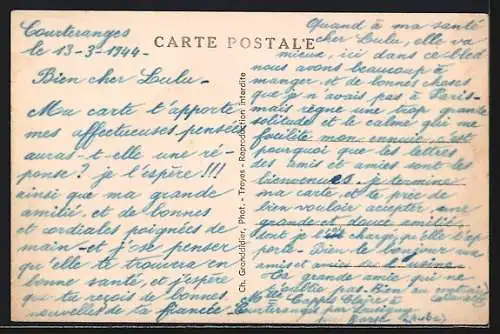 Courteranges
le 13-3-1944-
CARTE POSTALE
Bien cher Lulu-
Ma carte t'apporte
mes affectueuses pensées
auras-t-elle une ré-
ponse? je l'éspère!!!
ainsi que ma grande
amitié et de bonnes
et cordiales poignées de
main- et j'ose penser
qu'elle te trouvera en
bonne santé, et j'éspère
que tu reçois de bonnes
nouvelles de ta fiancée-
Ch. Grohddidier, Phot. - Troyes - Reproduction interdite
Quand à ma santé
cher Lulu, elle va
mieux, ici dans ce bled
nous avons beaucoup à
manger et de bonnes choses
que je n'avais pas à Paris-
mais règne une trop grande
solitude et le calme, qui me
facilite mon c'est
pourquoi que les lettres
des amis et amies sont les
bienvenues. je termine
ma carte et te prie de
bien vouloir accepter une
grande et douce amitié
dont je l'ai chargé, qu'elle t'em
porte- Bien le bonjour aux
amis et
Ta grande amie qui ne
t'oublie pas- Bien
Melle Cappé Claire à
Courteranges par Lusigny
(Aube)